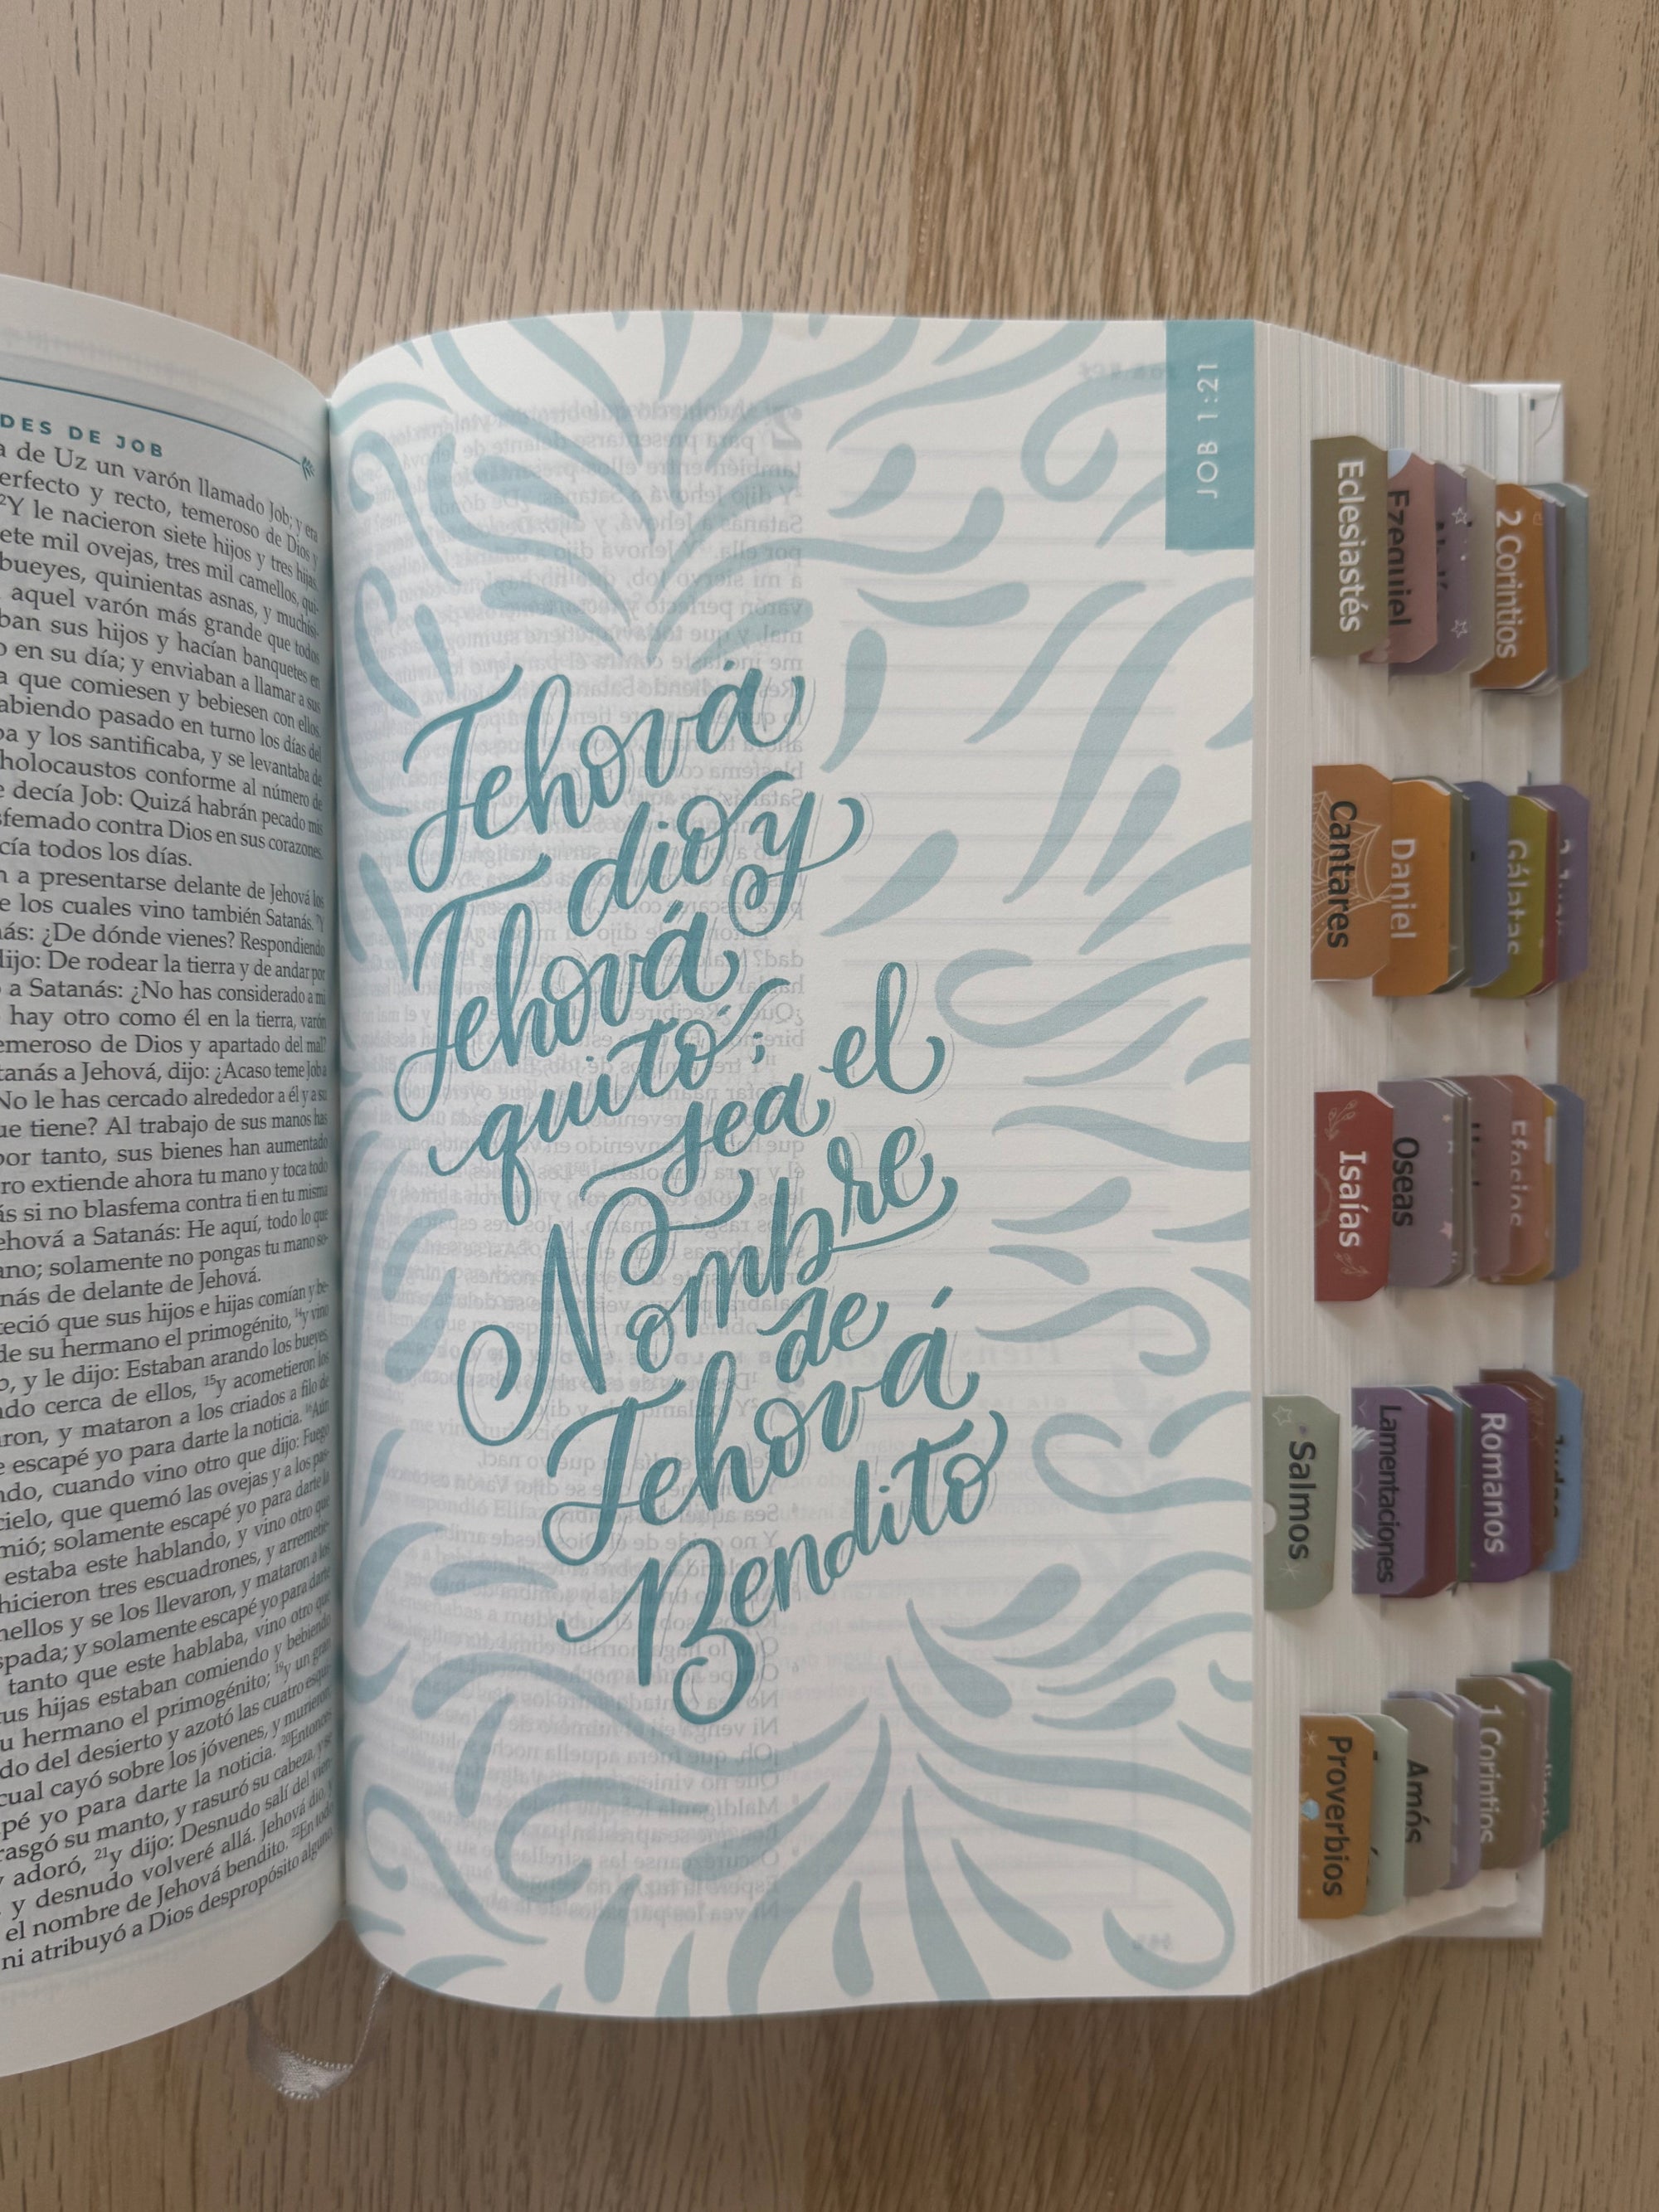 DES DE JOB
de Uz un varón llamado Job; y era
perfecto y recto, temeroso de Dios y
²Y le nacieron siete hijos y tres hijas.
siete mil ovejas, tres mil camellos, qui-
bueyes, quinientas asnas, y muchísi-
aquel varón más grande que todos
ban sus hijos y hacían banquetes en
en su día; y enviaban a llamar a sus
que comiesen y bebiesen con ellos.
habiendo pasado en turno los días del
y los santificaba, y se levantaba de
holocaustos conforme al número de
decía Job: Quizá habrán pecado mis
femado contra Dios en sus corazones.
cía todos los días.
a presentarse delante de Jehová los
los cuales vino también Satanás. ⁷Y
nás: ¿De dónde vienes? Respondiendo
dijo: De rodear la tierra y de andar por
a Satanás: ¿No has considerado a mi
hay otro como él en la tierra, varón
temeroso de Dios y apartado del mal?
tanás a Jehová, dijo: ¿Acaso teme Job a
No le has cercado alrededor a él y a su
que tiene? Al trabajo de sus manos has
por tanto, sus bienes han aumentado
ro extiende ahora tu mano y toca todo
ás si no blasfema contra ti en tu misma
Jehová a Satanás: He aquí, todo lo que
ano; solamente no pongas tu mano so-
nás de delante de Jehová.
teció que sus hijos e hijas comían y be-
de su hermano el primogénito, ¹⁴y vino
o, y le dijo: Estaban arando los bueyes,
ndo cerca de ellos, ¹⁵y acometieron los
aron, y mataron a los criados a filo de
escapé yo para darte la noticia. ¹⁶Aún
ndo, cuando vino otro que dijo: Fuego
cielo, que quemó las ovejas y a los pas-
mió; solamente escapé yo para darte la
estaba este hablando, y vino otro que
hicieron tres escuadrones, y arremetie-
mellos y se los llevaron, y mataron a los
spada; y solamente escapé yo para darte
tanto que este hablaba, vino otro que
tus hijas estaban comiendo y bebiendo
su hermano el primogénito; ¹⁹y un gran
do del desierto y azotó las cuatro esqui-
cual cayó sobre los jóvenes, y murieron;
pé yo para darte la noticia. ²⁰Entonces
rasgó su manto, y rasuró su cabeza, y se
adoró, ²¹y dijo: Desnudo salí del vien-
y desnudo volveré allá. Jehová dio, y
el nombre de Jehová bendito. ²²En todo
ni atribuyó a Dios despropósito alguno.
JOB 1:21
Jehová
dio y
Jehová
quitó;
sea el
Nombre
de
Jehová
Bendito
Eclesiastés
Ezequiel
2 Corintios
Cantares
Daniel
Gálatas
Isaías
Oseas
Efesios
Salmos
Lamentaciones
Romanos
Judas
Proverbios
Amós
1 Corintios